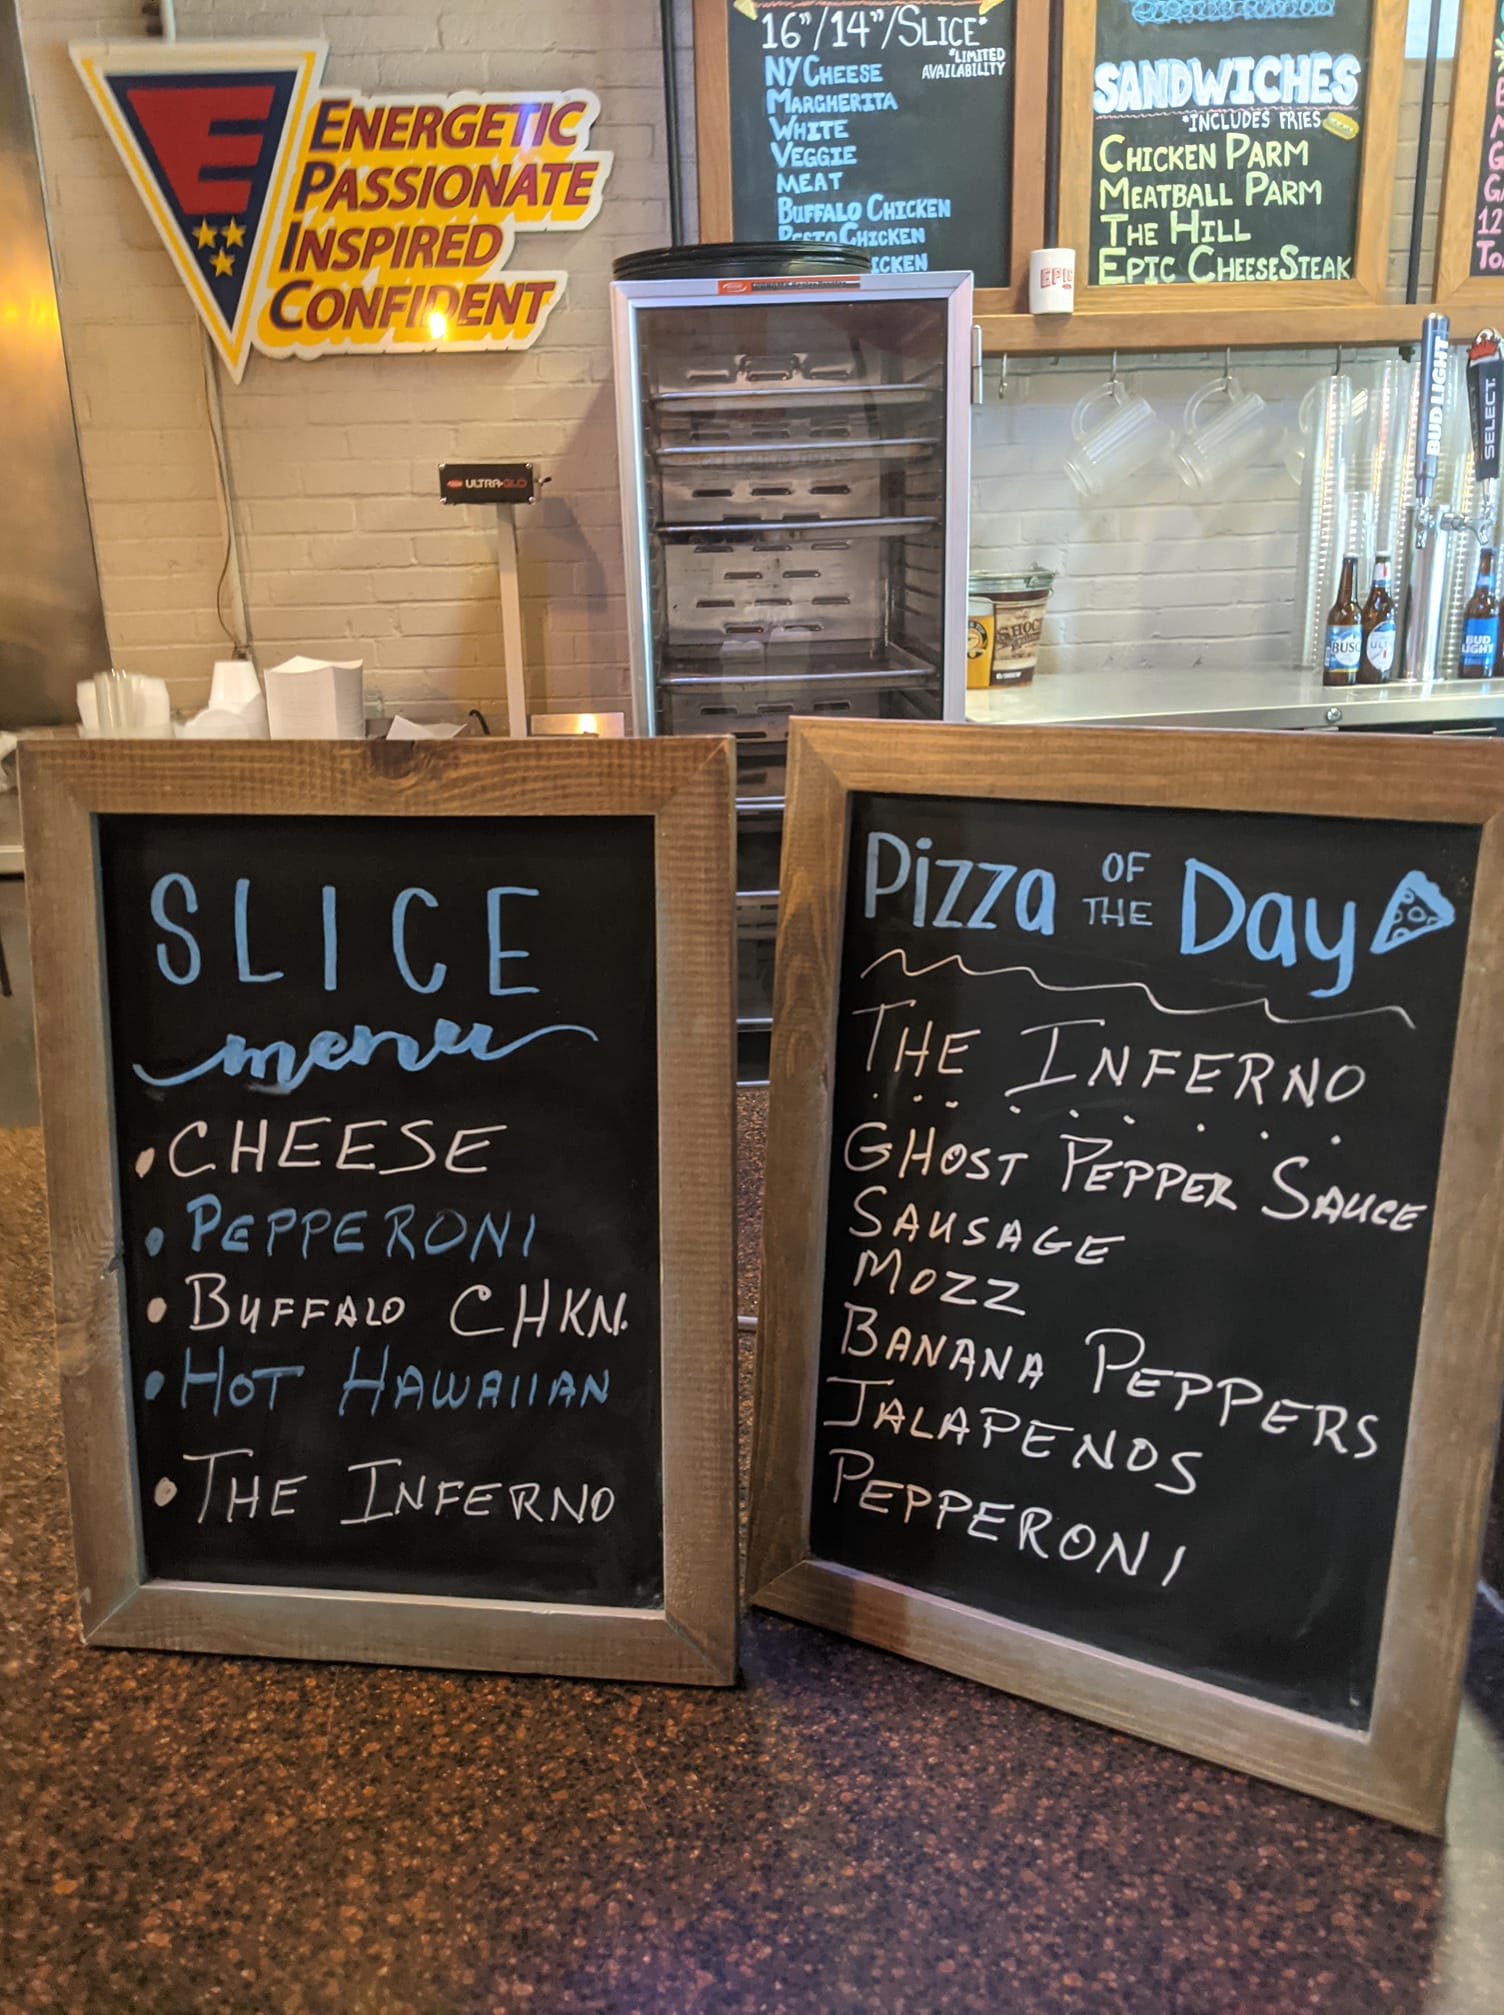 E
ENERGETIC
PASSIONATE
INSPIRED
CONFIDENT
16"/14"/SLICE*
*LIMITED
AVAILABILITY
NY CHEESE
MARGHERITA
WHITE
VEGGIE
MEAT
BUFFALO CHICKEN
PESTO CHICKEN
ICKEN
SANDWICHES
*INCLUDES FRIES
CHICKEN PARM
MEATBALL PARM
THE HILL
EPIC CHEESESTEAK
12
EPIC
ULTRA-GLO
BUD LIGHT
SELECT
BUSC
BUD
LIGHT
SLICE
menu
• CHEESE
• PEPPERONI
• BUFFALO CHKN.
• HOT HAWAIIAN
• THE INFERNO
Pizza OF THE Day
THE INFERNO
GHOST PEPPER SAUCE
SAUSAGE
MOZZ
BANANA PEPPERS
JALAPENOS
PEPPERONI